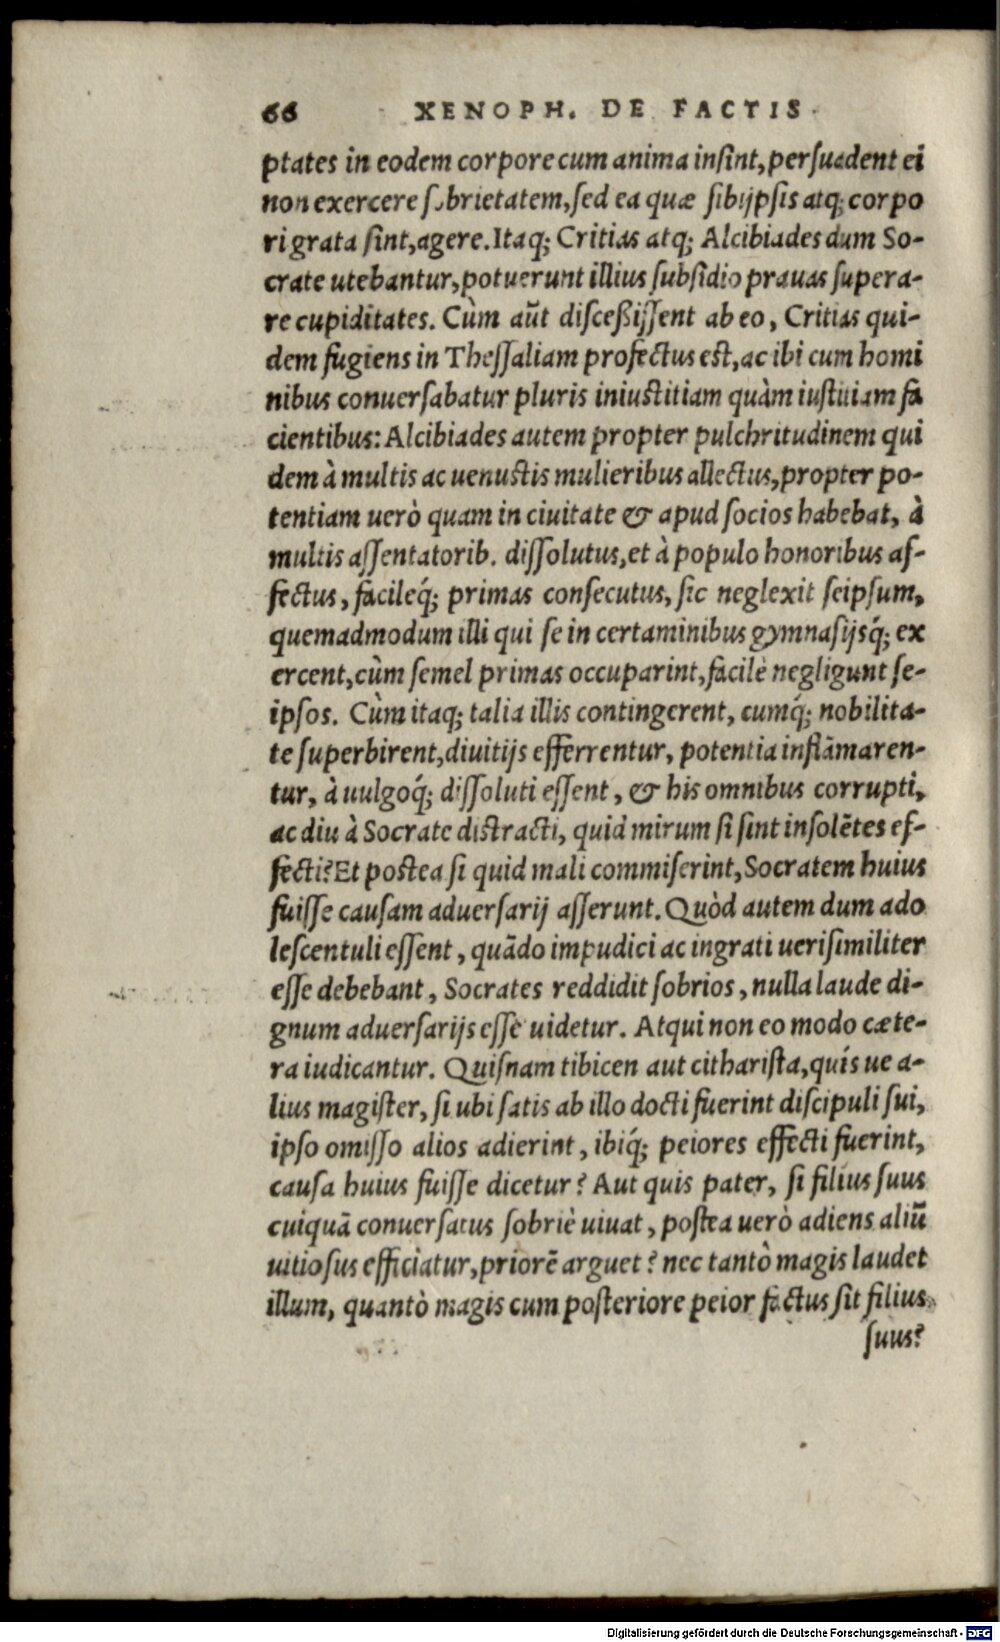 66 XENOPH. DE FACTIS
ptates in eodem corpore cum anima inſint, perſuadent ei
non exercere ſobrietatem, ſed ea quæ ſibijpſis atq; corpo
ri grata ſint, agere. Itaq; Critias atq; Alcibiades dum So-
crate utebantur, potuerunt illius ſubſidio prauas ſupera-
re cupiditates. Cùm aũt diſceßiſſent ab eo, Critias qui-
dem fugiens in Theſſaliam profectus est, ac ibi cum homi
nibus conuerſabatur pluris iniustitiam quàm iuſtitiam fa
cientibus: Alcibiades autem propter pulchritudinem qui
dem à multis ac uenustis mulieribus allectus, propter po-
tentiam uerò quam in ciuitate & apud ſocios habebat, à
multis aſſentatorib. diſſolutus, et à populo honoribus af-
fectus, facileq́; primas conſecutus, ſic neglexit ſeipſum,
quemadmodum illi qui ſe in certaminibus gymnaſijsq́; ex
ercent, cùm ſemel primas occuparint, facilè negligunt ſe-
ipſos. Cùm itaq; talia illis contingerent, cumq́; nobilita-
te ſuperbirent, diuitijs efferrentur, potentia inflāmaren-
tur, à uulgoq́; diſſoluti eſſent, & his omnibus corrupti,
ac diu à Socrate distracti, quid mirum ſi ſint inſolẽtes ef-
fecti? Et postea ſi quid mali commiſerint, Socratem huius
fuiſſe cauſam aduerſarij aſſerunt. Quòd autem dum ado
leſcentuli eſſent, quãdo impudici ac ingrati ueriſimiliter
eſſe debebant, Socrates reddidit ſobrios, nulla laude di-
gnum aduerſarijs eſſe uidetur. Atqui non eo modo cæte-
ra iudicantur. Quiſnam tibicen aut cithariſta, quís ue a-
lius magiſter, ſi ubi ſatis ab illo docti fuerint diſcipuli ſui,
ipſo omiſſo alios adierint, ibiq́; peiores effecti fuerint,
cauſa huius fuiſſe dicetur? Aut quis pater, ſi filius ſuus
cuiquã conuerſatus ſobriè uiuat, poſtea uerò adiens aliũ
uitioſus efficiatur, priorẽ arguet? nec tantò magis laudet
illum, quantò magis cum poſteriore peior factus ſit filius
ſuus?
Digitalisierung gefördert durch die Deutsche Forschungsgemeinschaft - DFG